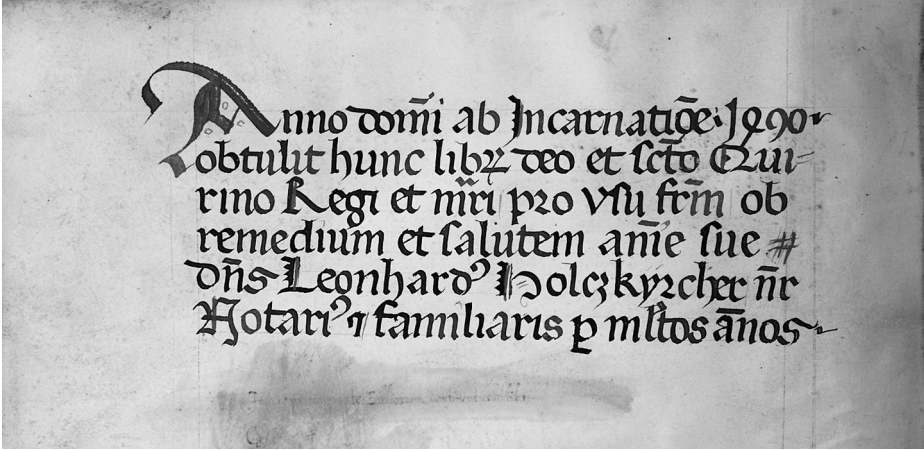 Anno dom̄i ab Incarnatiōe · 1490 ·
obtulit hunc librꝝ deo et sc̄to Qui-
rino Regi et m̄ri pro vsu fr̄m ob
remedium et salutem am̄e sue
dn̄s Leonhardꝰ Holczkyrcher n̄r
Notariꝰ ⁊ familiaris ꝑ ml̄tos ān̄os